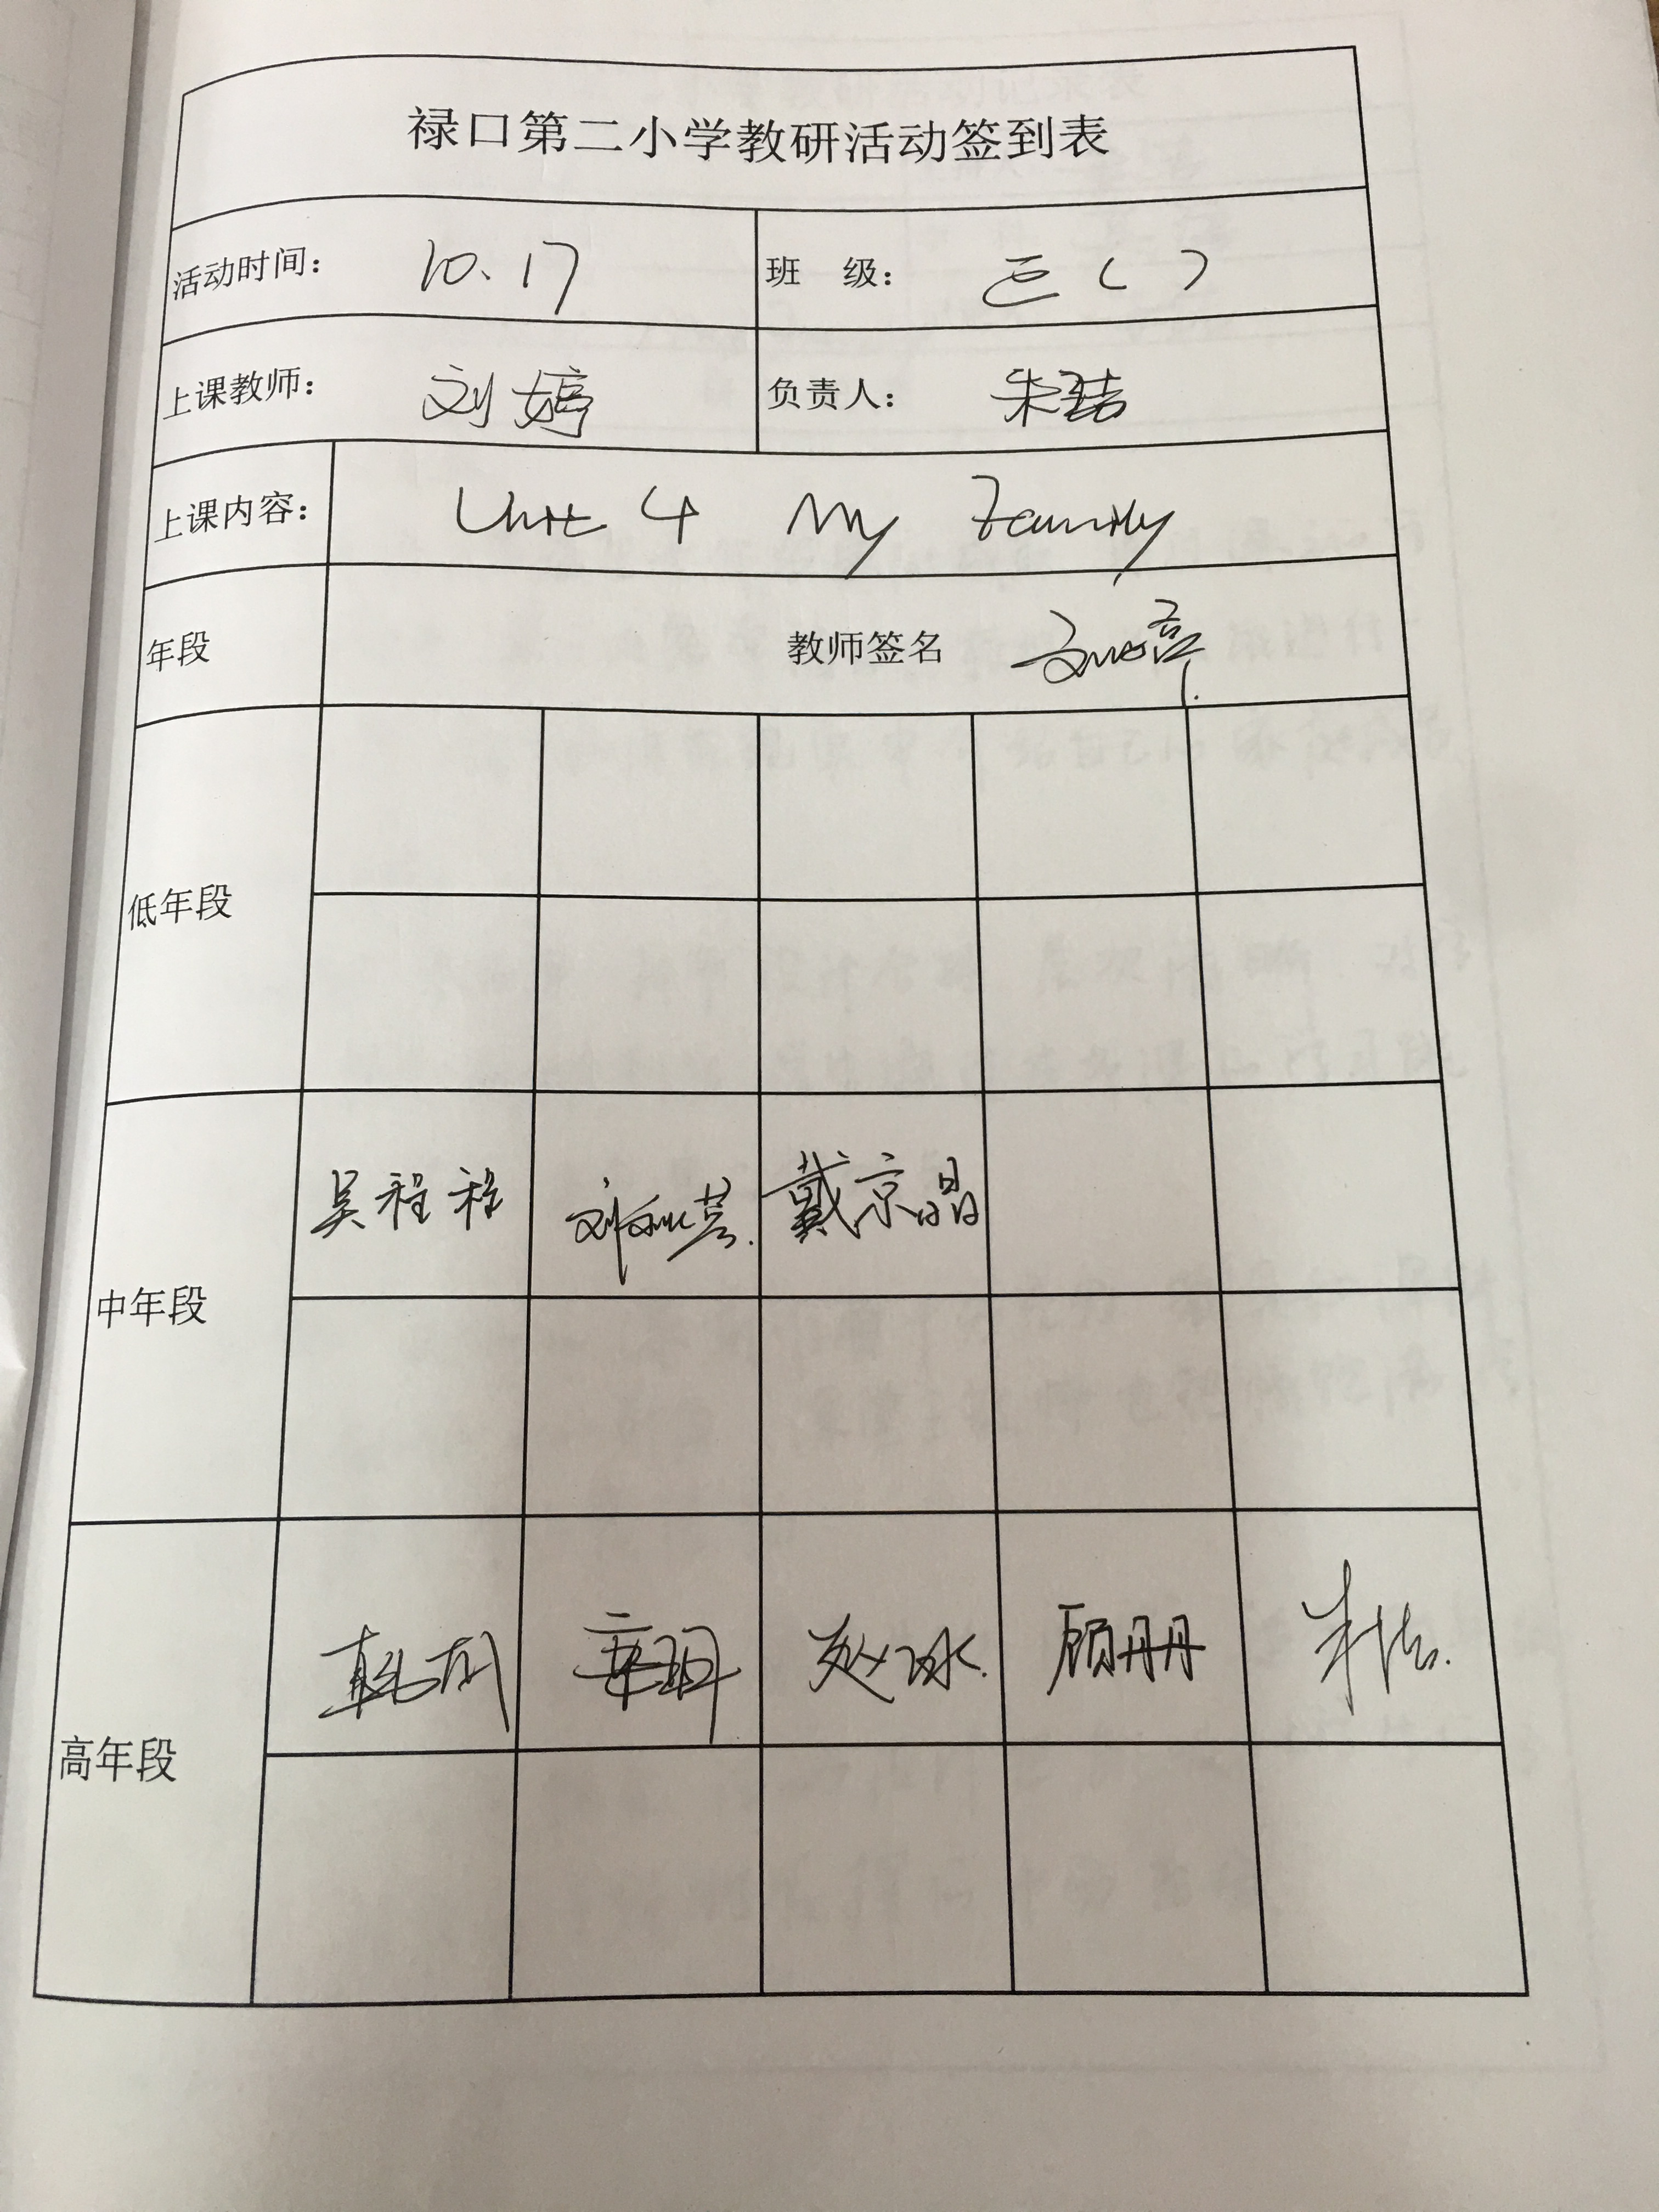 禄口第二小学教研活动签到表
活动时间： 10.17 班 级： 三（ ）
上课教师： 刘婷 负责人： 朱喆
上课内容： Unit 4 My Family
年段 教师签名 刘婷
低年段
吴程程 戴京晶
中年段
赵冰 顾丹丹
高年段